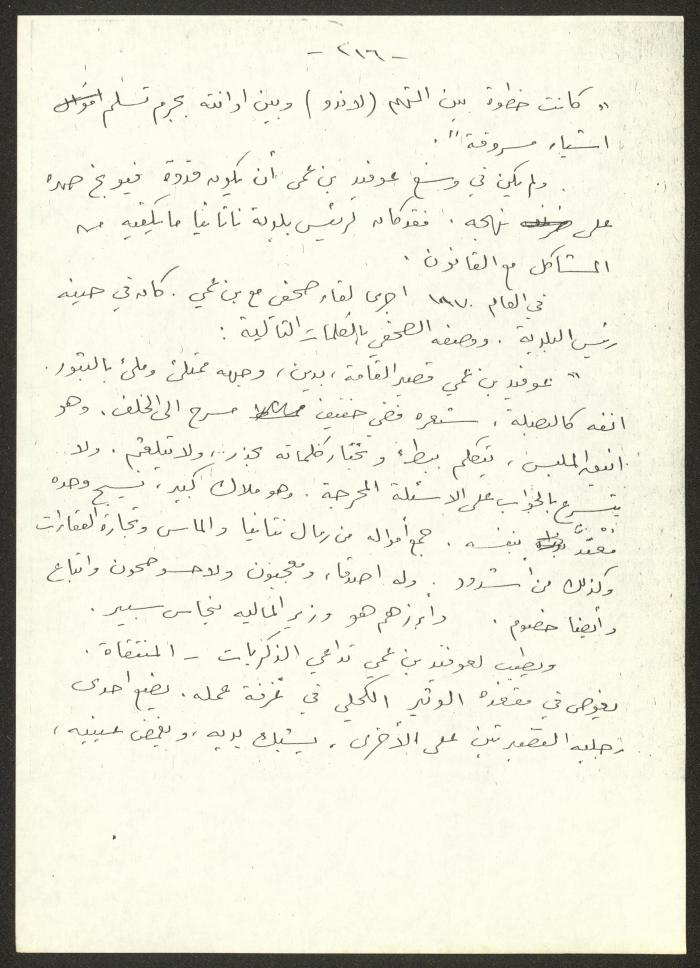 - ٢١٦ -
" كانت خطوة بين التهم (لاندو) وبين ادانته بجرم تسلم اموال
اشياء مسروقة ".
. ولم يكن في وسع عوفيد بن عمي أن يكون قدوة فيوبخ صهره
على نهجه. فقد كان لرئيس بلدية ناتانيا ما يكفيه من
المشاكل مع القانون.
في العام ١٩٧٠ اجرى لقاء صحفي مع بن عمي. كان في حينه
رئيس البلدية. ووصفه الصحفي بالكلمات التالية:
" عوفيد بن عمي قصير القامة، بدين، وجهه ممتلئ وملئ بالبثور.
انفه كالبصلة، شعره فضي خفيف مسرح الى الخلف. وهو
انيق الملبس، يتكلم ببطء ويختار كلماته بحذر، ولا يتلعثم. ولا
يتسرع بالجواب على الاسئلة المحرجة. وهو ملاك كبير، يسبح وحده
معتدّ بنفسه. جمع أمواله من رمال نتانيا والماس وتجارة العقارات
وكذلك من أشدود. وله اصدقاء ومعجبون ولاحسو صحون واتباع
وأيضا خصوم. وأبرزهم هو وزير المالية بنحاس سبير.
ويطيب لعوفيد بن عمي تداعي الذكريات - المنتقاة.
يغوص في مقعده الوثير الكحلي في غرفة عمله. يضع احدى
رجليه القصيرتين على الأخرى، يشبك يديه، ويغمض عينيه،